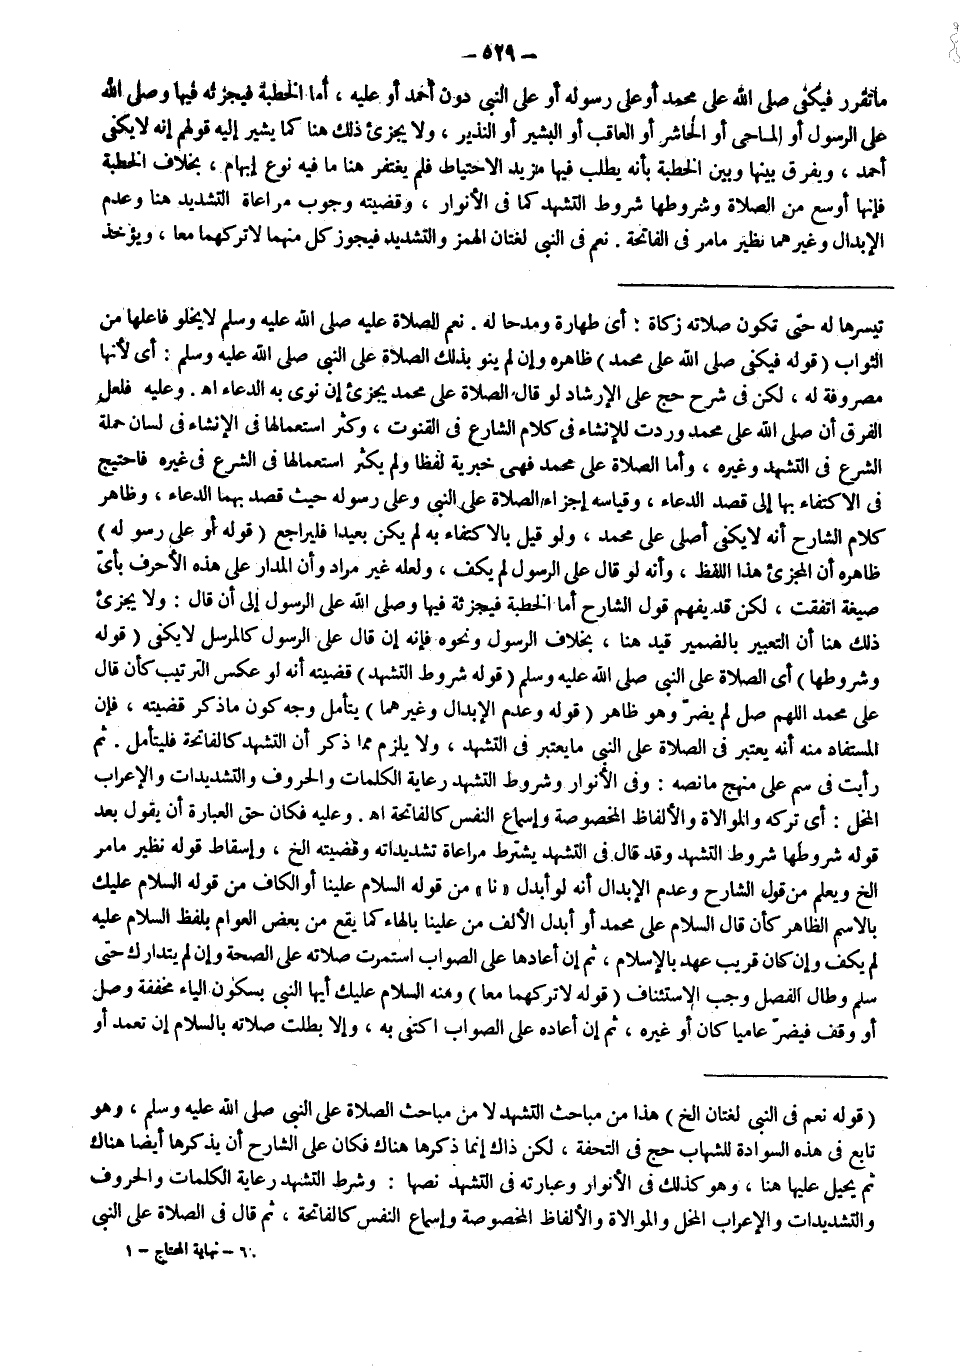 – ٥٢٩ –
ماتقرر فيكفى صلى الله على محمد أوعلى رسوله أو على النبي دون أحمد أو عليه ، أما الخطبة فيجزئه فيها وصلى الله
على الرسول أو الماحى أو الحاشر أو العاقب أو البشير أو النذير ، ولا يجزئ ذلك هنا كما يشير إليه قولهم إنه لايكفى
أحمد ، ويفرق بينها وبين الخطبة بأنه يطلب فيها مزيد الاحتياط فلم يغتفر هنا ما فيه نوع إبهام ، بخلاف الخطبة
فإنها أوسع من الصلاة وشروطها شروط التشهد كما فى الأنوار ، وقضيته وجوب مراعاة التشديد هنا وعدم
الإبدال وغيرهما نظير مامر فى الفاتحة . نعم فى النبي لغتان الهمز والتشديد فيجوز كل منهما لاتركهما معا ، ويؤخذ
تيسرها له حتى تكون صلاته زكاة : أى طهارة ومدحا له . نعم الصلاة عليه صلى الله عليه وسلم لايخلو فاعلها من
الثواب ( قوله فيكفى صلى الله على محمد ) ظاهره وإن لم ينو بذلك الصلاة على النبي صلى الله عليه وسلم : أى لأنها
مصروفة له ، لكن فى شرح حج على الإرشاد لو قال الصلاة على محمد يجزئ إن نوى به الدعاء اه . وعليه فلعل
الفرق أن صلى الله على محمد وردت للإنشاء فى كلام الشارع فى القنوت ، وكثر استعمالها فى الإنشاء فى لسان حملة
الشرع فى التشهد وغيره ، وأما الصلاة على محمد فهى خبرية لفظا ولم يكثر استعمالها فى الشرع فى غيره فاحتيج
فى الاكتفاء بها إلى قصد الدعاء ، وقياسه إجزاء الصلاة على النبي وعلى رسوله حيث قصد بهما الدعاء ، وظاهر
كلام الشارح أنه لايكفى أصلى على محمد ، ولو قيل بالاكتفاء به لم يكن بعيدا فليراجع ( قوله أو على رسو له )
ظاهره أن المجزئ هذا اللفظ ، وأنه لو قال على الرسول لم يكف ، ولعله غير مراد وأن المدار على هذه الأحرف بأىّ
صيغة اتفقت ، لكن قد يفهم قول الشارح أما الخطبة فيجزئة فيها وصلى الله على الرسول إلى أن قال : ولا يجزئ
ذلك هنا أن التعبير بالضمير قيد هنا ، بخلاف الرسول ونحوه فإنه إن قال على الرسول كالمرسل لايكفى ( قوله
وشروطها ) أى الصلاة على النبي صلى الله عليه وسلم ( قوله شروط التشهد ) قضيته أنه لو عكس الترتيب كأن قال
على محمد اللهم صل لم يضرّ وهو ظاهر ( قوله وعدم الإبدال وغيرهما ) يتأمل وجه كون ماذكر قضيته ، فإن
المستفاد منه أنه يعتبر فى الصلاة على النبي مايعتبر فى التشهد ، ولا يلزم مما ذكر أن التشهد كالفاتحة فليتأمل . ثم
رأيت فى سم على منهج مانصه : وفى الأنوار وشروط التشهد رعاية الكلمات والحروف والتشديدات والإعراب
المخل : أى تركه والموالاة والألفاظ المخصوصة وإسماع النفس كالفاتحة اه . وعليه فكان حق العبارة أن يقول بعد
قوله شروطها شروط التشهد وقد قال فى التشهد يشترط مراعاة تشديداته وقضيته الخ ، وإسقاط قوله نظير مامر
الخ ويعلم من قول الشارح وعدم الإبدال أنه لو أبدل « نا » من قوله السلام علينا أو الكاف من قوله السلام عليك
بالاسم الظاهر كأن قال السلام على محمد أو أبدل الألف من علينا بالهاء كما يقع من بعض العوام بلفظ السلام عليه
لم يكف وإن كان قريب عهد بالإسلام ، ثم إن أعادها على الصواب استمرت صلاته على الصحة وإن لم يتدارك حتى
سلم وطال الفصل وجب الاستئناف ( قوله لاتركهما معا ) ومنه السلام عليك أيها النبي بسكون الياء مخففة وصل
أو وقف فيضرّ عاميا كان أو غيره ، ثم إن أعاده على الصواب اكتفى به ، وإلا بطلت صلاته بالسلام إن تعمد أو
( قوله نعم فى النبي لغتان الخ ) هذا من مباحث التشهد لا من مباحث الصلاة على النبي صلى الله عليه وسلم ، وهو
تابع فى هذه السوادة للشهاب حج فى التحفة ، لكن ذاك إنما ذكرها هناك فكان على الشارح أن يذكرها أيضا هناك
ثم يحيل عليها هنا ، وهو كذلك فى الأنوار وعبارته فى التشهد نصها : وشرط التشهد رعاية الكلمات والحروف
والتشديدات والإعراب المخل والموالاة والألفاظ المخصوصة وإسماع النفس كالفاتحة ، ثم قال فى الصلاة على النبي
٦٠ – نهاية المحتاج – ١